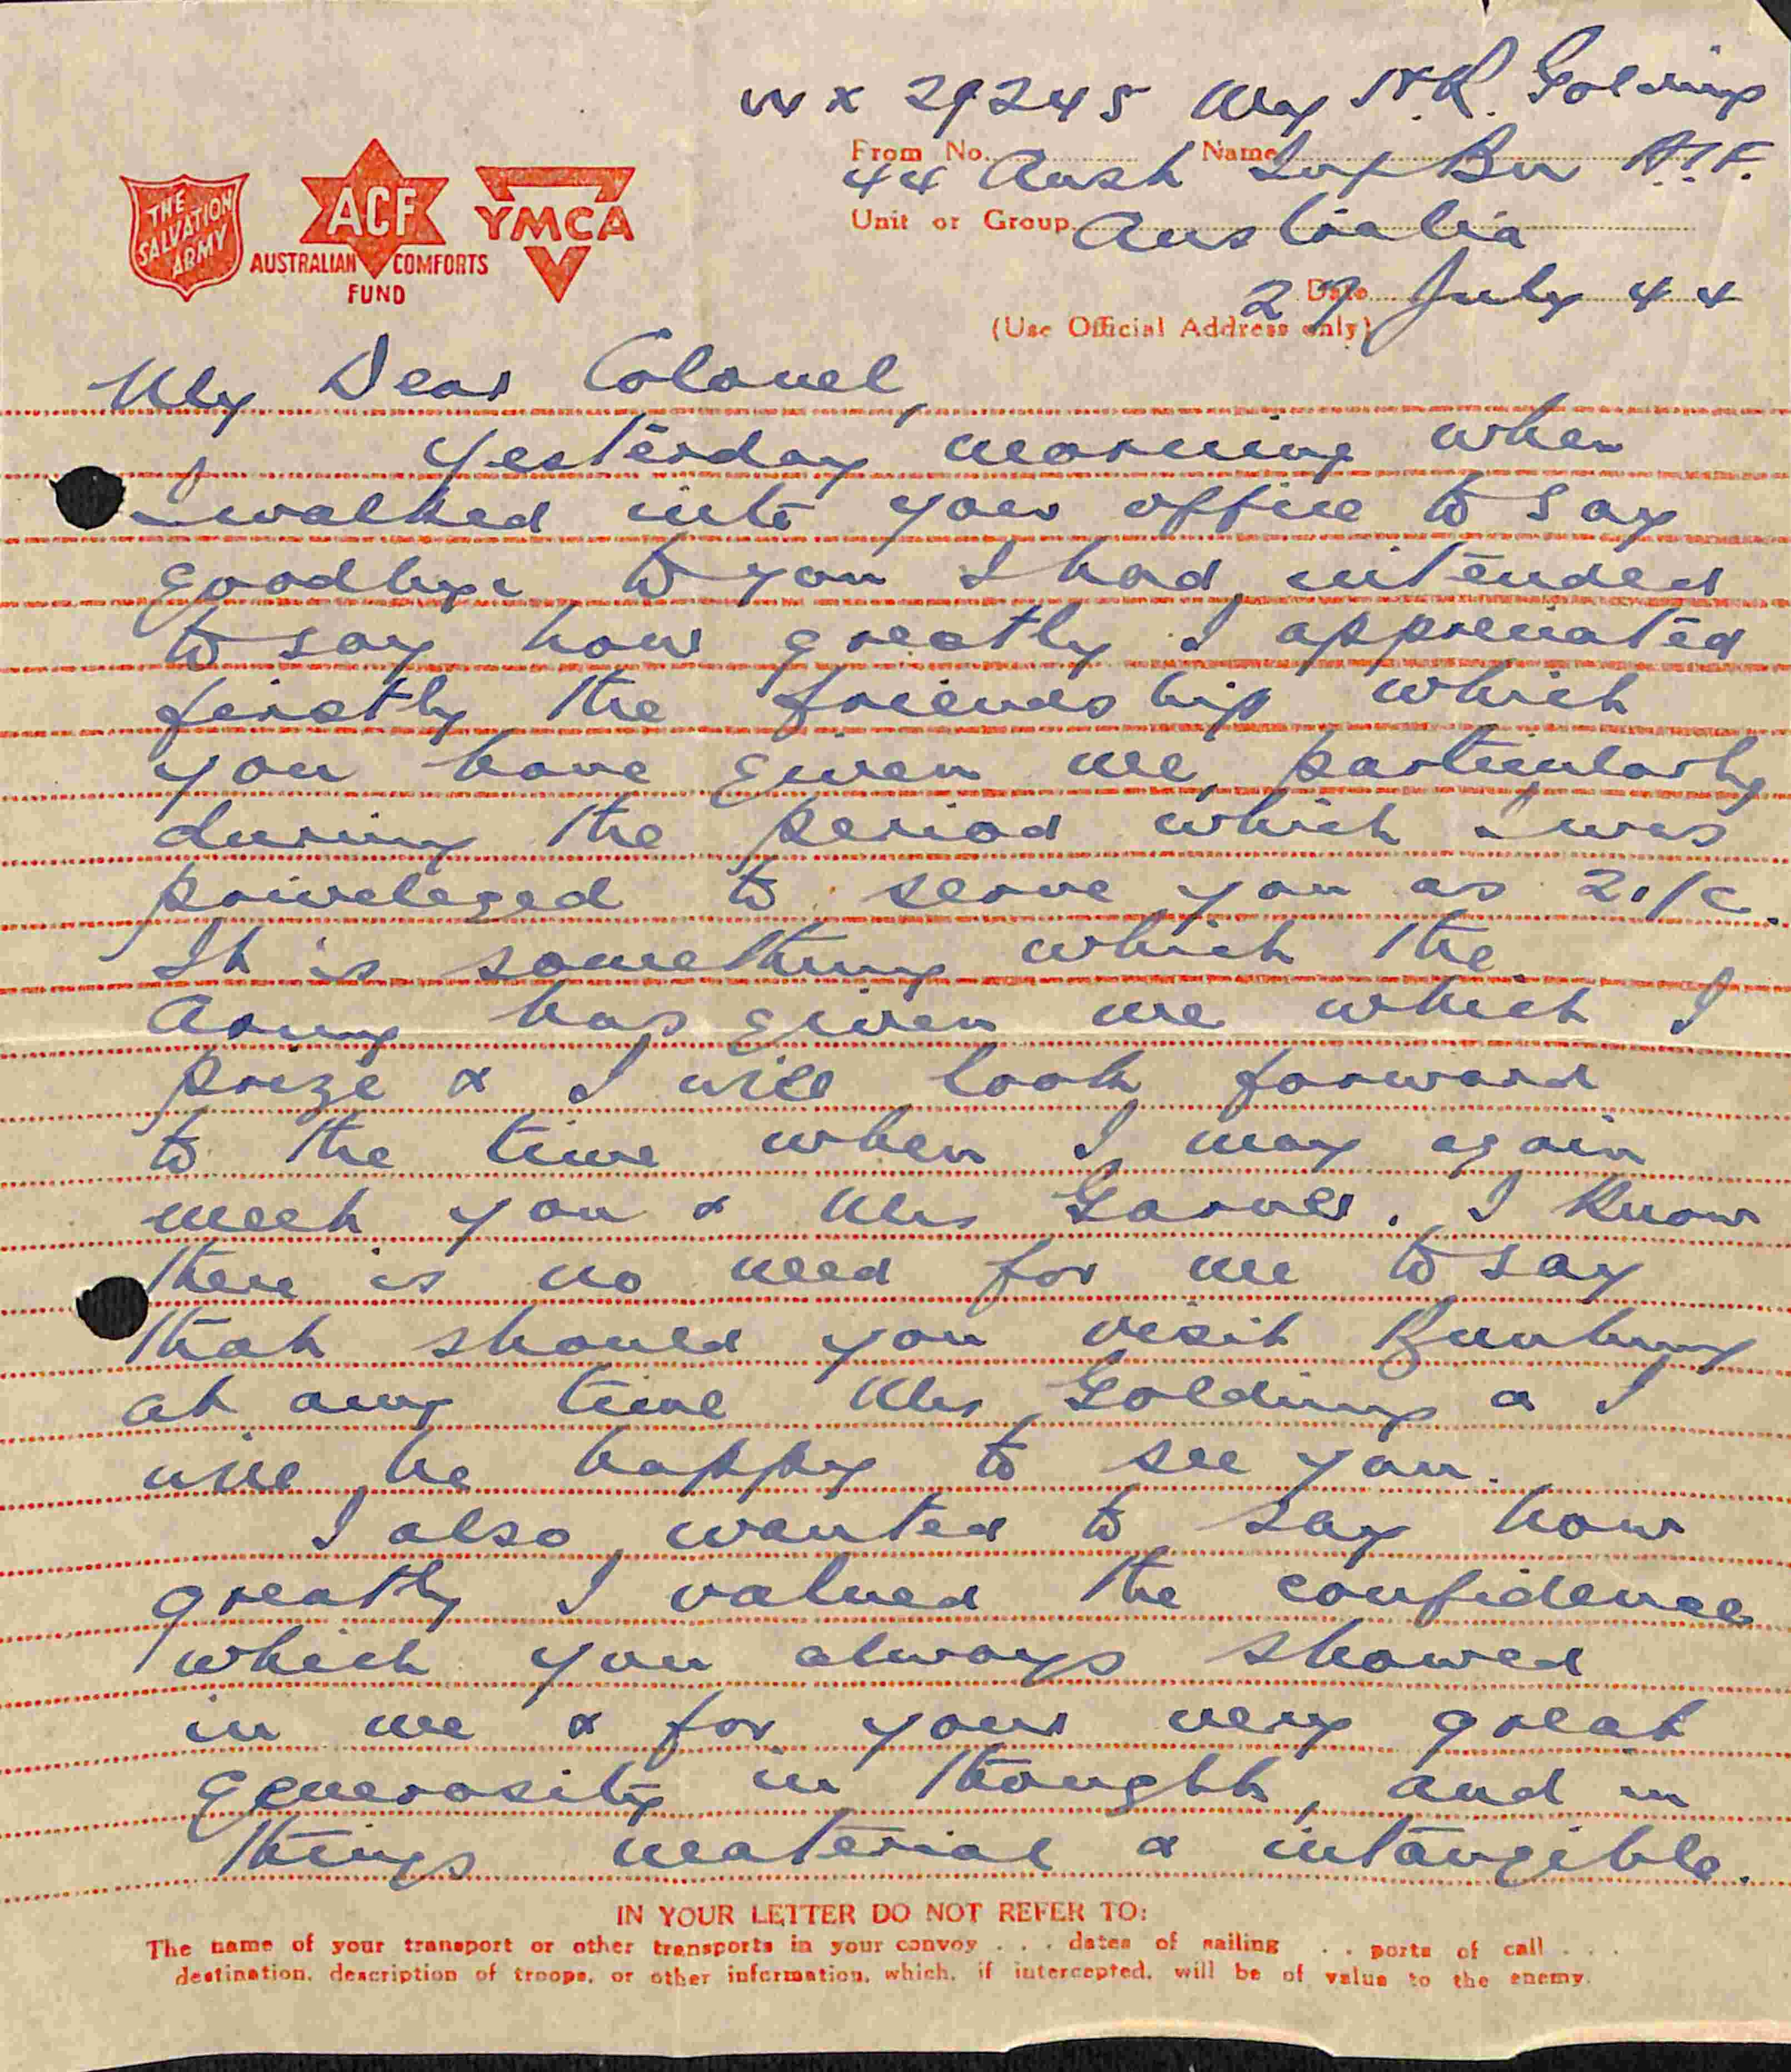 WX 29245 Maj N.R. Golding
From No. Name
44 Aust Inf Bn A.I.F.
Unit or Group Australia
THE
SALVATION
ARMY
ACF
AUSTRALIAN COMFORTS
FUND
YMCA
Date 29 July 44
(Use Official Address only)
My Dear Colonel,
Yesterday morning when
I walked into your office to say
goodbye to you I had intended
to say how greatly I appreciated
firstly the friendship which
you have given me, particularly
during the period which I was
priveleged to serve you as 2i/c.
It is something which the
Army has given me which I
prize & I will look forward
to the time when I may again
meet you & Mrs. I know
there is no need for me to say
that should you visit Bunbury
at any time Mrs Golding & I
will be happy to see you.
I also wanted to say how
greatly I valued the confidence
which you always showed
in me & for your very great
generosity in thought, and in
things material & intangible.
IN YOUR LETTER DO NOT REFER TO:
The name of your transport or other transports in your convoy . . . dates of sailing . . ports of call . . .
destination, description of troops, or other information, which, if intercepted, will be of value to the enemy.